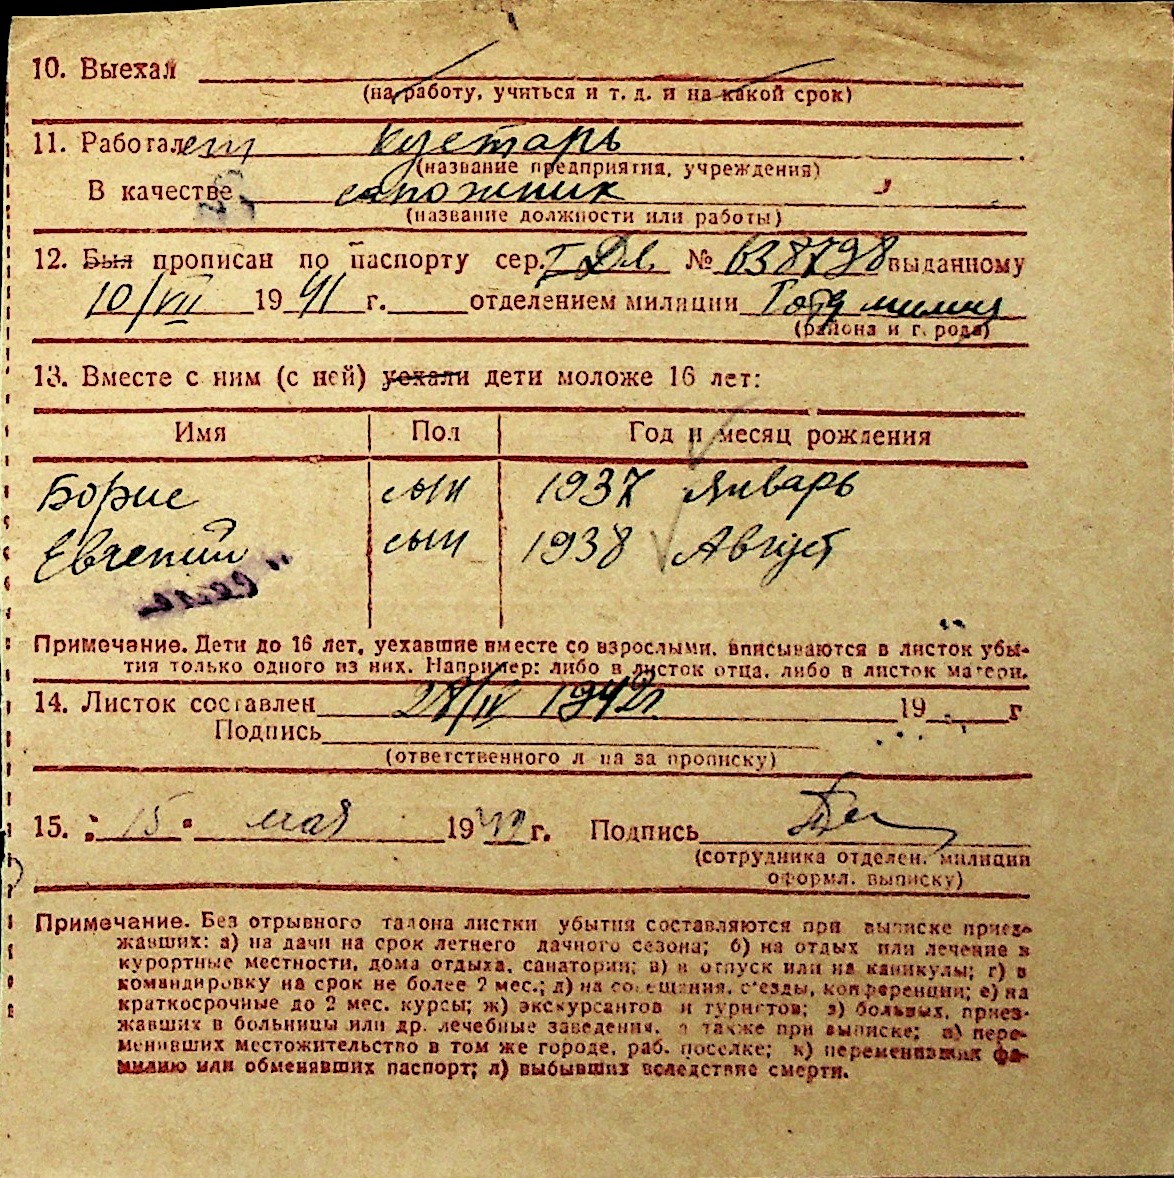 10. Выехал
(на работу, учиться и т. д. и на какой срок)
11. Работает кустарь
(название предприятия, учреждения)
В качестве сапожник
(название должности или работы)
12. Был прописан по паспорту сер. № 638798 выданному
10/VII 1941 г. отделением милиции
(района и города)
13. Вместе с ним (с ней) уехали дети моложе 16 лет:
Имя Пол Год и месяц рождения
Борис сын 1937 Январь
Евгений сын 1938 Август
Примечание. Дети до 16 лет, уехавшие вместе со взрослыми, вписываются в листок убы-
тия только одного из них. Например: либо в листок отца, либо в листок матери.
14. Листок составлен 27/IV 1942г 19 г
Подпись
(ответственного лица за прописку)
15. „15" мая 1942 г. Подпись
(сотрудника отделен. милиции
оформл. выписку)
Примечание. Без отрывного талона листки убытия составляются при выписке приез-
жавших: а) на дачи на срок летнего дачного сезона; б) на отдых или лечение в
курортные местности, дома отдыха, санатории; в) в отпуск или на каникулы; г) в
командировку на срок не более 2 мес.; д) на совещания, съезды, конференции; е) на
краткосрочные до 2 мес. курсы; ж) экскурсантов и туристов; з) больных, приез-
жавших в больницы или др. лечебные заведения, а также при выписке; и) пере-
менивших местожительство в том же городе, раб. поселке; к) переменивших фа-
милию или обменявших паспорт; л) выбывших вследствие смерти.